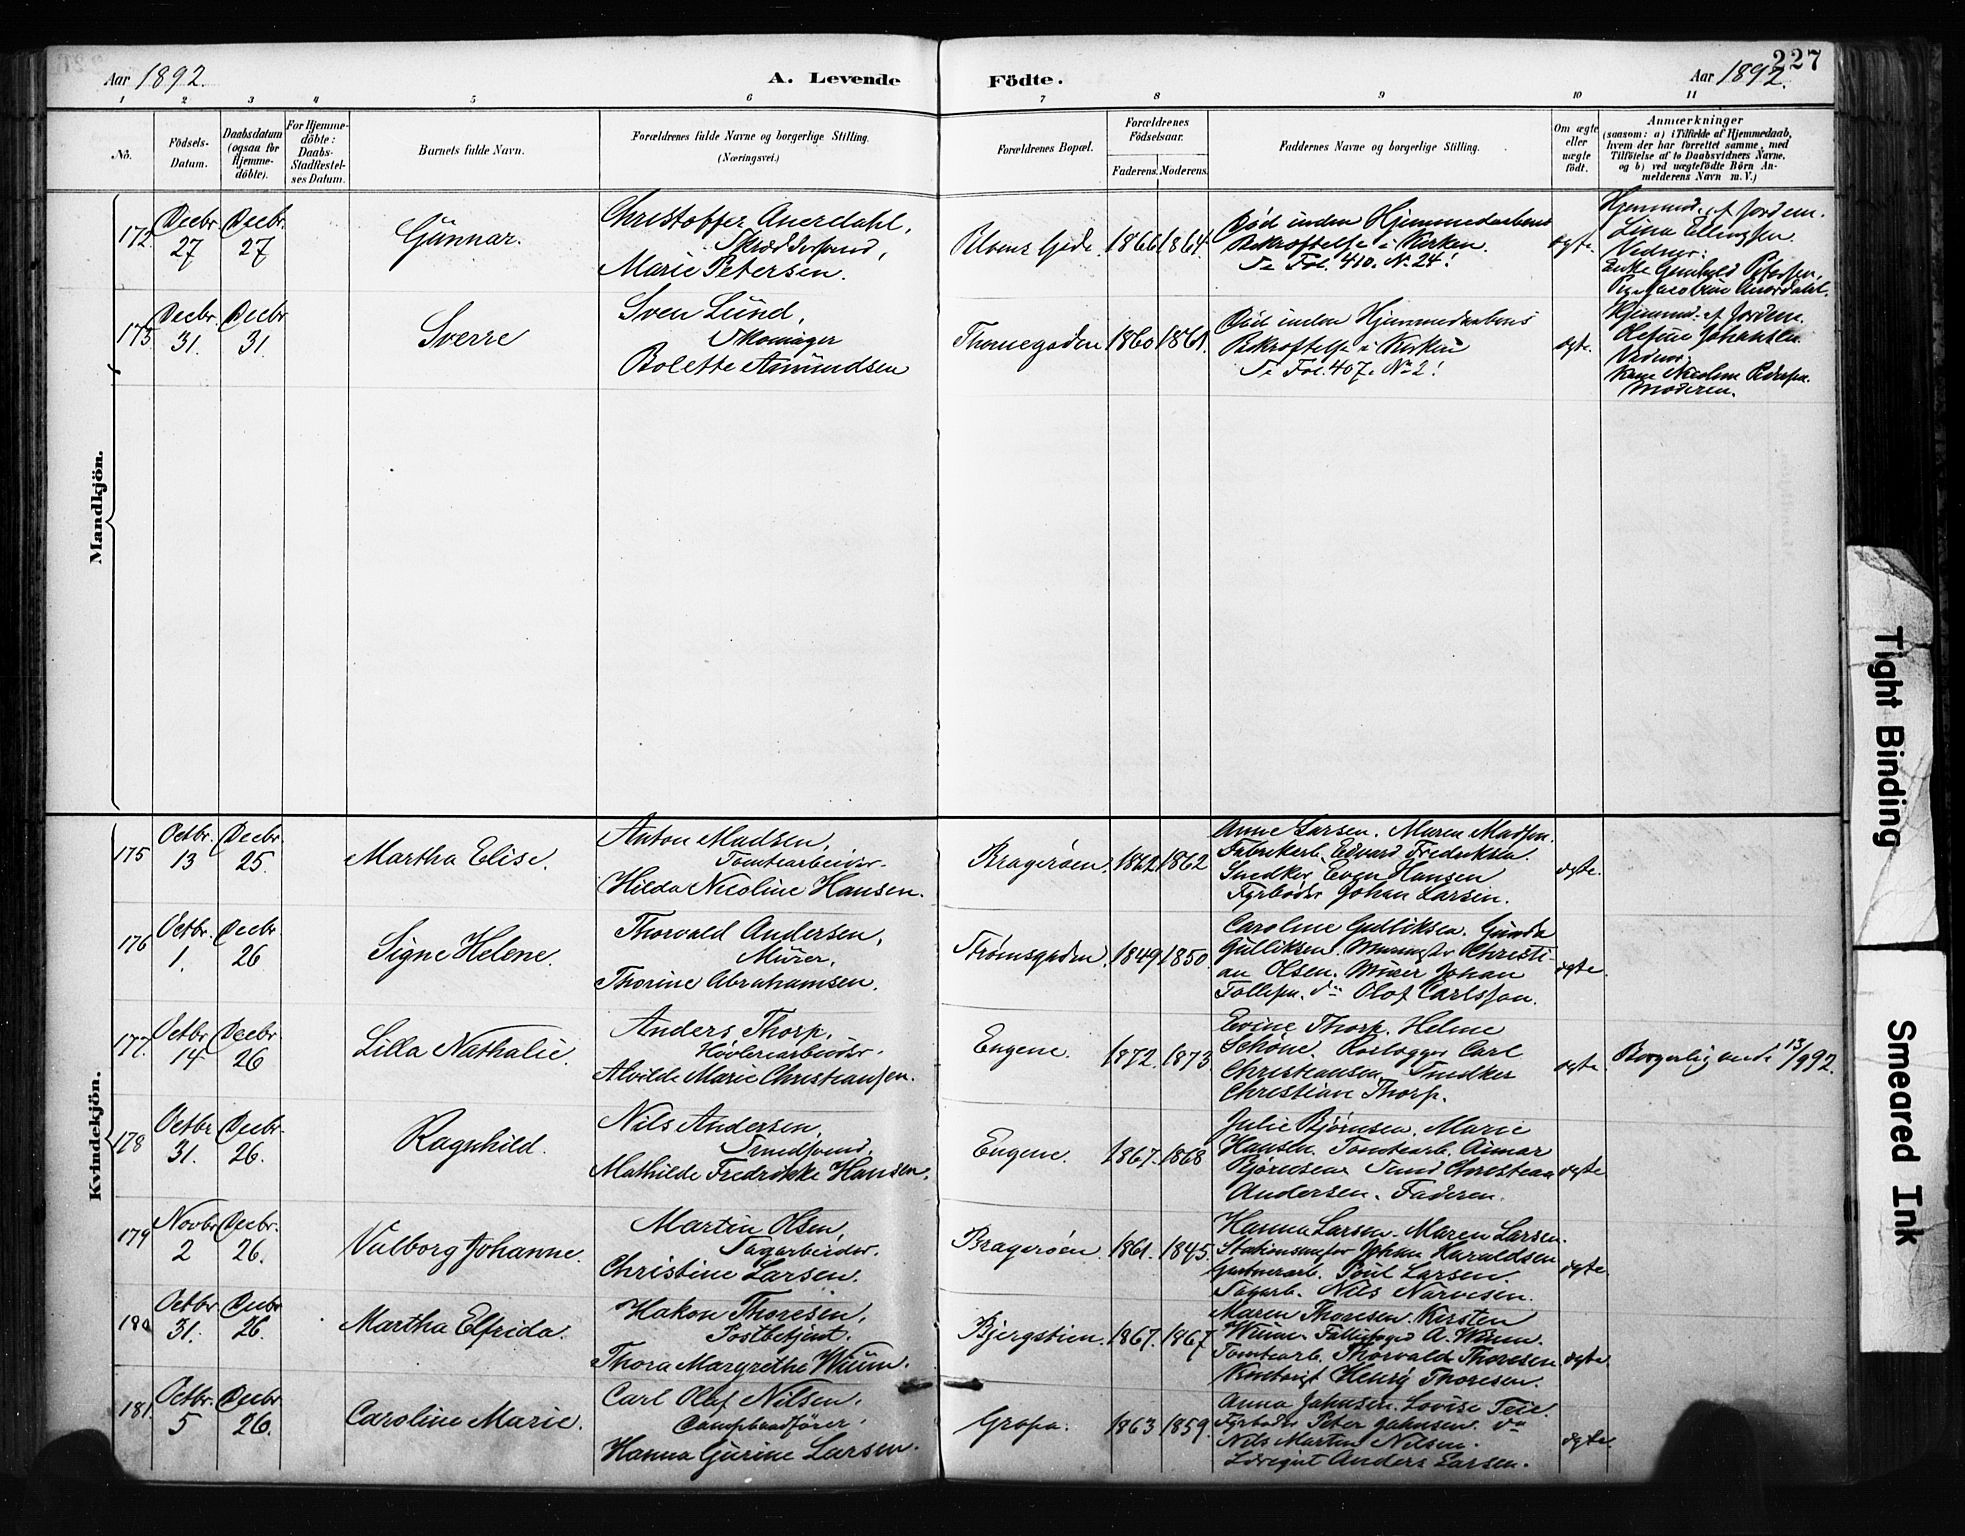 227
Aar 1892.
A. Levende
Födte.
Aar 1892.
1 2 3 4 5 6 7 8 9 10 11
No.
Födsels-
Datum.
Daabsdatum
(ogsaa for
Hjemme-
döbte).
For Hjemme-
döbte:
Daabs-
Stadfæstel-
ses Datum.
Barnets fulde Navn.
Forældrenes fulde Navne og borgerlige Stilling.
(Næringsvei.)
Forældrenes Bopæl.
Forældrenes
Födselsaar.
Faderens. Moderens.
Faddernes Navne og borgerlige Stilling.
Om ægte
eller
uægte
födt.
Anmærkninger
(saasom: a) i Tilfælde af Hjemmedaab,
hvem der har forrettet samme, med
Tilföielse af to Daabsvidners Navne,
og b) ved uægtefödte Börn An-
melderens Navn m. V.)
Mandkjön.
172
Decbr.
27
Decbr.
27
Gunnar.
Christoffer Anerdahl,
Marie Petersen.
1866
1864
Død inden Hjemmedaabens
Bekræftelse i Kirken.
Se Fol. 410. No 24!
ægte.
Hjemmd. af Jordem.
Lina Ellingsen
Vidner:
173
Decbr.
31.
Decbr.
31.
Sverre
Sven Lund,
Skomager
Bolette Amundsen
Thornegaden
1860
1861.
Død inden Hjemmedaabens
Bekræftelse i Kirken
Se Fol. 407. No 2!
ægte.
Hjemmd. af Jordem.
Olefine Johansen
Vidner:
Kone Nicoline Pedersen.
Moderen.
Kvindekjön.
175
Octbr.
13
Decbr.
25.
Martha Elise.
Anton Madsen,
Tomtearbeider.
Hilda Nicoline Hansen.
Bragerøen.
1862
1862
Anne Larsen. Maren Madsen.
Fabrikarb. Edvard Fredriksen.
Snedker Even Hansen
Fyrbøder Johan Larsen.
ægte.
176
Octbr.
1.
Decbr.
26
Signe Helene.
Thorvald Andersen,
Murer,
Thorine Abrahamsen.
Strømsgaden.
1849
1850.
Caroline Gulliksen. Gunda
Gulliksen. Murmester Christi-
an Olsen. Murer Johan
Tollefsen. do Olof Carlsson.
ægte.
177.
Octbr.
14
Decbr.
26
Lilla Nathalie.
Anders Thorp,
Høvleriarbeider.
Alvilde Marie Christiansen.
Engene.
1872.
1873
Evine Thorp. Helene
Schöne. Carl
Christiansen. Snedker
Christian Thorp.
ægte.
Borgerlig viede 13/9 92.
178
Octbr
31.
Decbr.
26.
Ragnhild.
Nils Andersen,
Smedsvend,
Mathilde Fredrikke Hansen.
Engene.
1867.
1868
Julie Bjørnsen. Marie
Hansen. Tomtearb. Einar
Bjørnsen. Smed Christian
Andersen. Faderen.
ægte.
179
Novbr.
2
Decbr.
26.
Valborg Johanne.
Martin Olsen,
Sagarbeider.
Christine Larsen.
Bragerøen.
1861.
1845.
Hanna Larsen. Maren Larsen.
Johan Haraldsen
Gartnerarb. Poul Larsen.
Sagarb. Nils Narvesen.
ægte.
180
Octbr
31.
Decbr
26.
Martha Elfrida.
Hakon Thoresen,
Postbetjent.
Thora Margrethe Wium.
Bjergstien.
1867.
1867
Maren Thoresen. Kirsten
Wium. A. Wium.
Tomtearb. Thorvald Thoresen
Kontorist Henry Thoresen.
ægte.
181.
Octbr.
5
Decbr.
26.
Caroline Marie.
Carl Olaf Nilsen,
Hanna Gurine Larsen.
Gropa.
1863
1859.
Anna Jahnsen. Lovise Teie.
Fyrbøder Peter Jahnsen. do
Nils Martin Nilsen.
Anders Larsen.
ægte.
Tight Binding
Smeared Ink